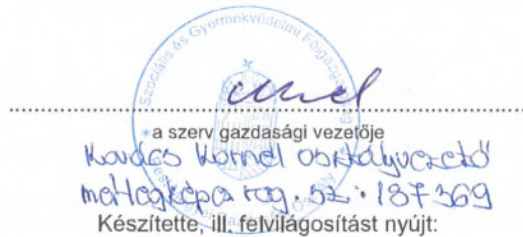 Szociális és Gyermekvédelmi Főigazgatóság
a szerv gazdasági vezetője
Kovács Kornél osztályvezető
mérlegképes reg. sz.: 187369
Készítette, ill. felvilágosítást nyújt: